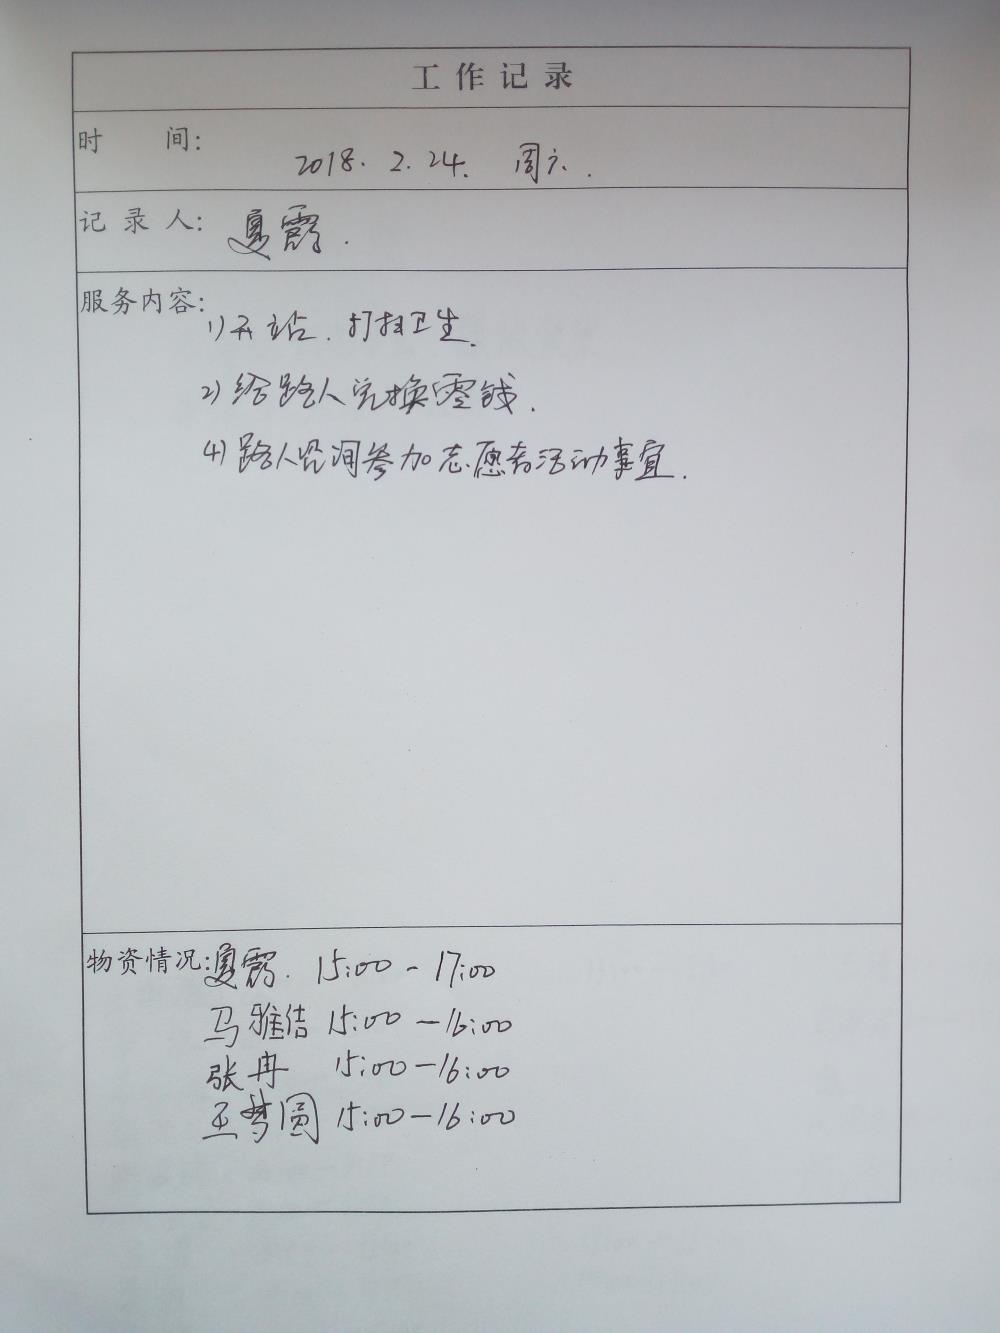 工作记录
时 间:
2018. 2. 24. 周六.
记录人: 夏霞.
服务内容:
1)开站. 打扫卫生.
2)给路人兑换零钱.
4)路人咨询参加志愿者活动事宜.
物资情况: 夏霞. 15:00-17:00
马雅洁 15:00-16:00
张冉 15:00-16:00
王梦圆 15:00-16:00